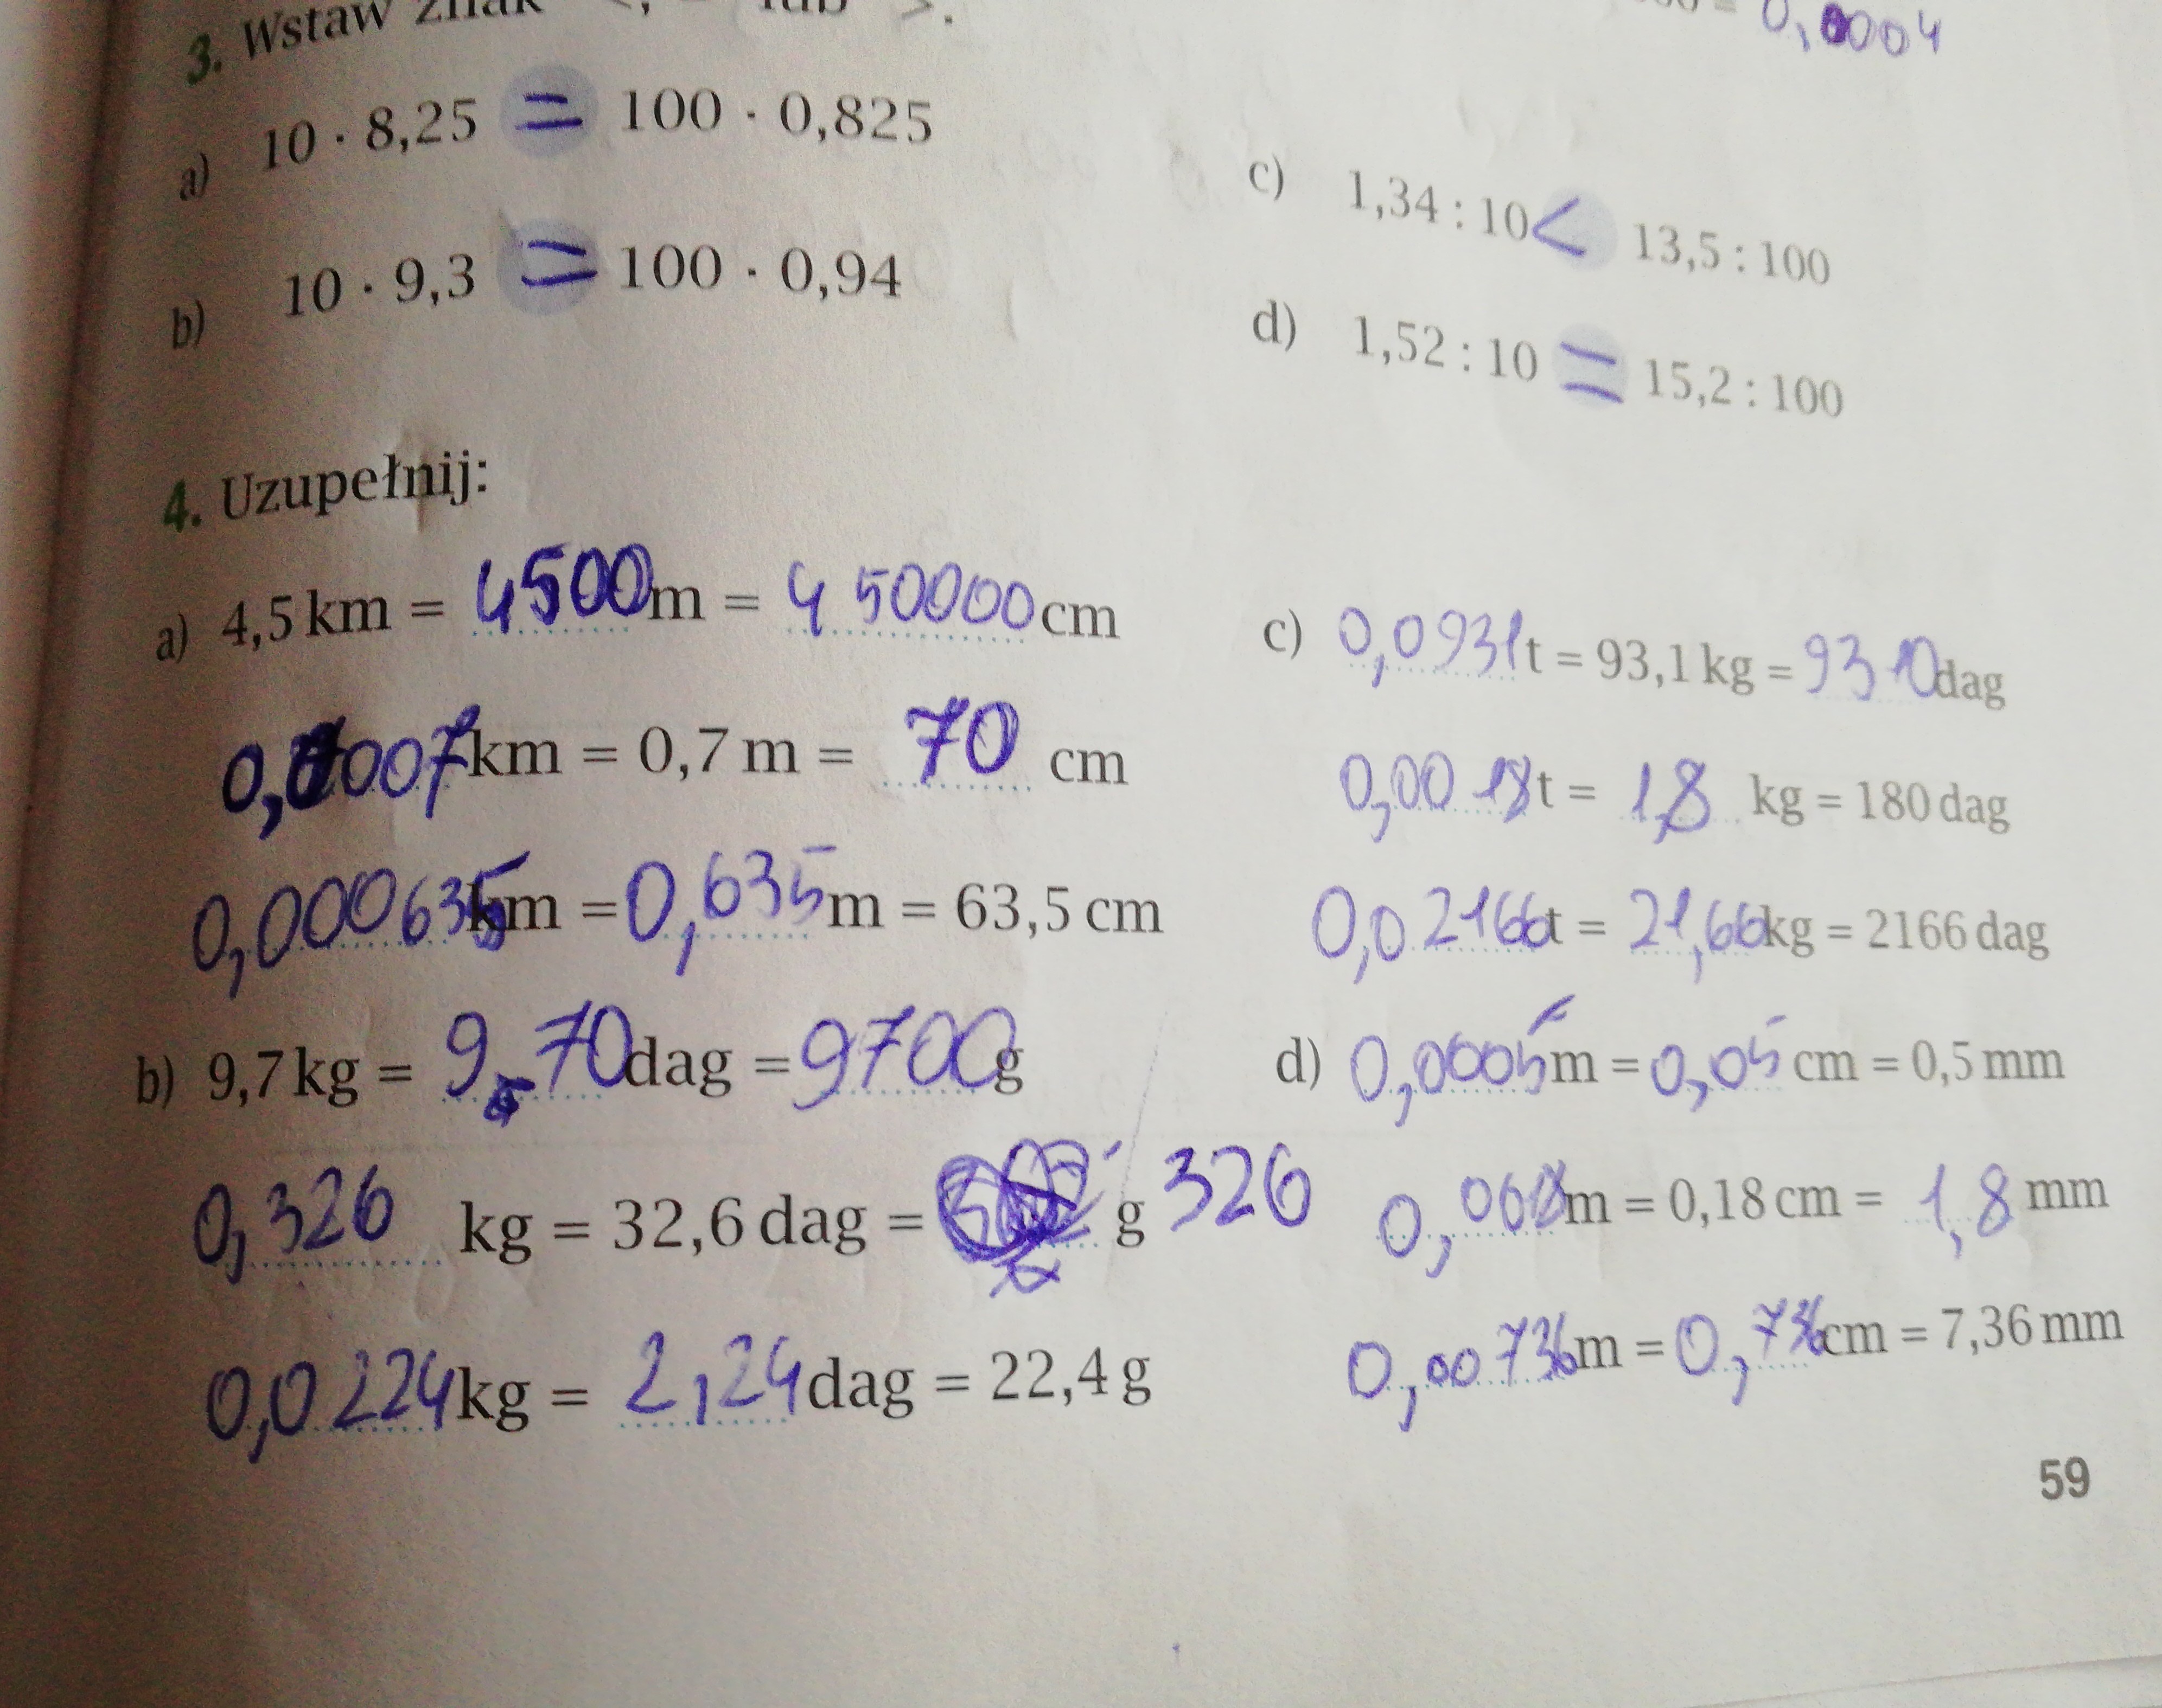 = 0,0004
3. Wstaw znak <, = lub >.
a) 10 · 8,25 = 100 · 0,825
b) 10 · 9,3 = 100 · 0,94
c) 1,34 : 10 < 13,5 : 100
d) 1,52 : 10 = 15,2 : 100
4. Uzupełnij:
a) 4,5 km = 4500 m = 450000 cm
0,0007 km = 0,7 m = 70 cm
0,000635 km = 0,635 m = 63,5 cm
b) 9,7 kg = 970 dag = 9700 g
0,326 kg = 32,6 dag = g 326
0,0224 kg = 2,24 dag = 22,4 g
c) 0,0931 t = 93,1 kg = 9310 dag
0,0018 t = 1,8 kg = 180 dag
0,02166 t = 21,66 kg = 2166 dag
d) 0,0005 m = 0,05 cm = 0,5 mm
m = 0,18 cm = 1,8 mm
0,00736 m = 0,736 cm = 7,36 mm
59